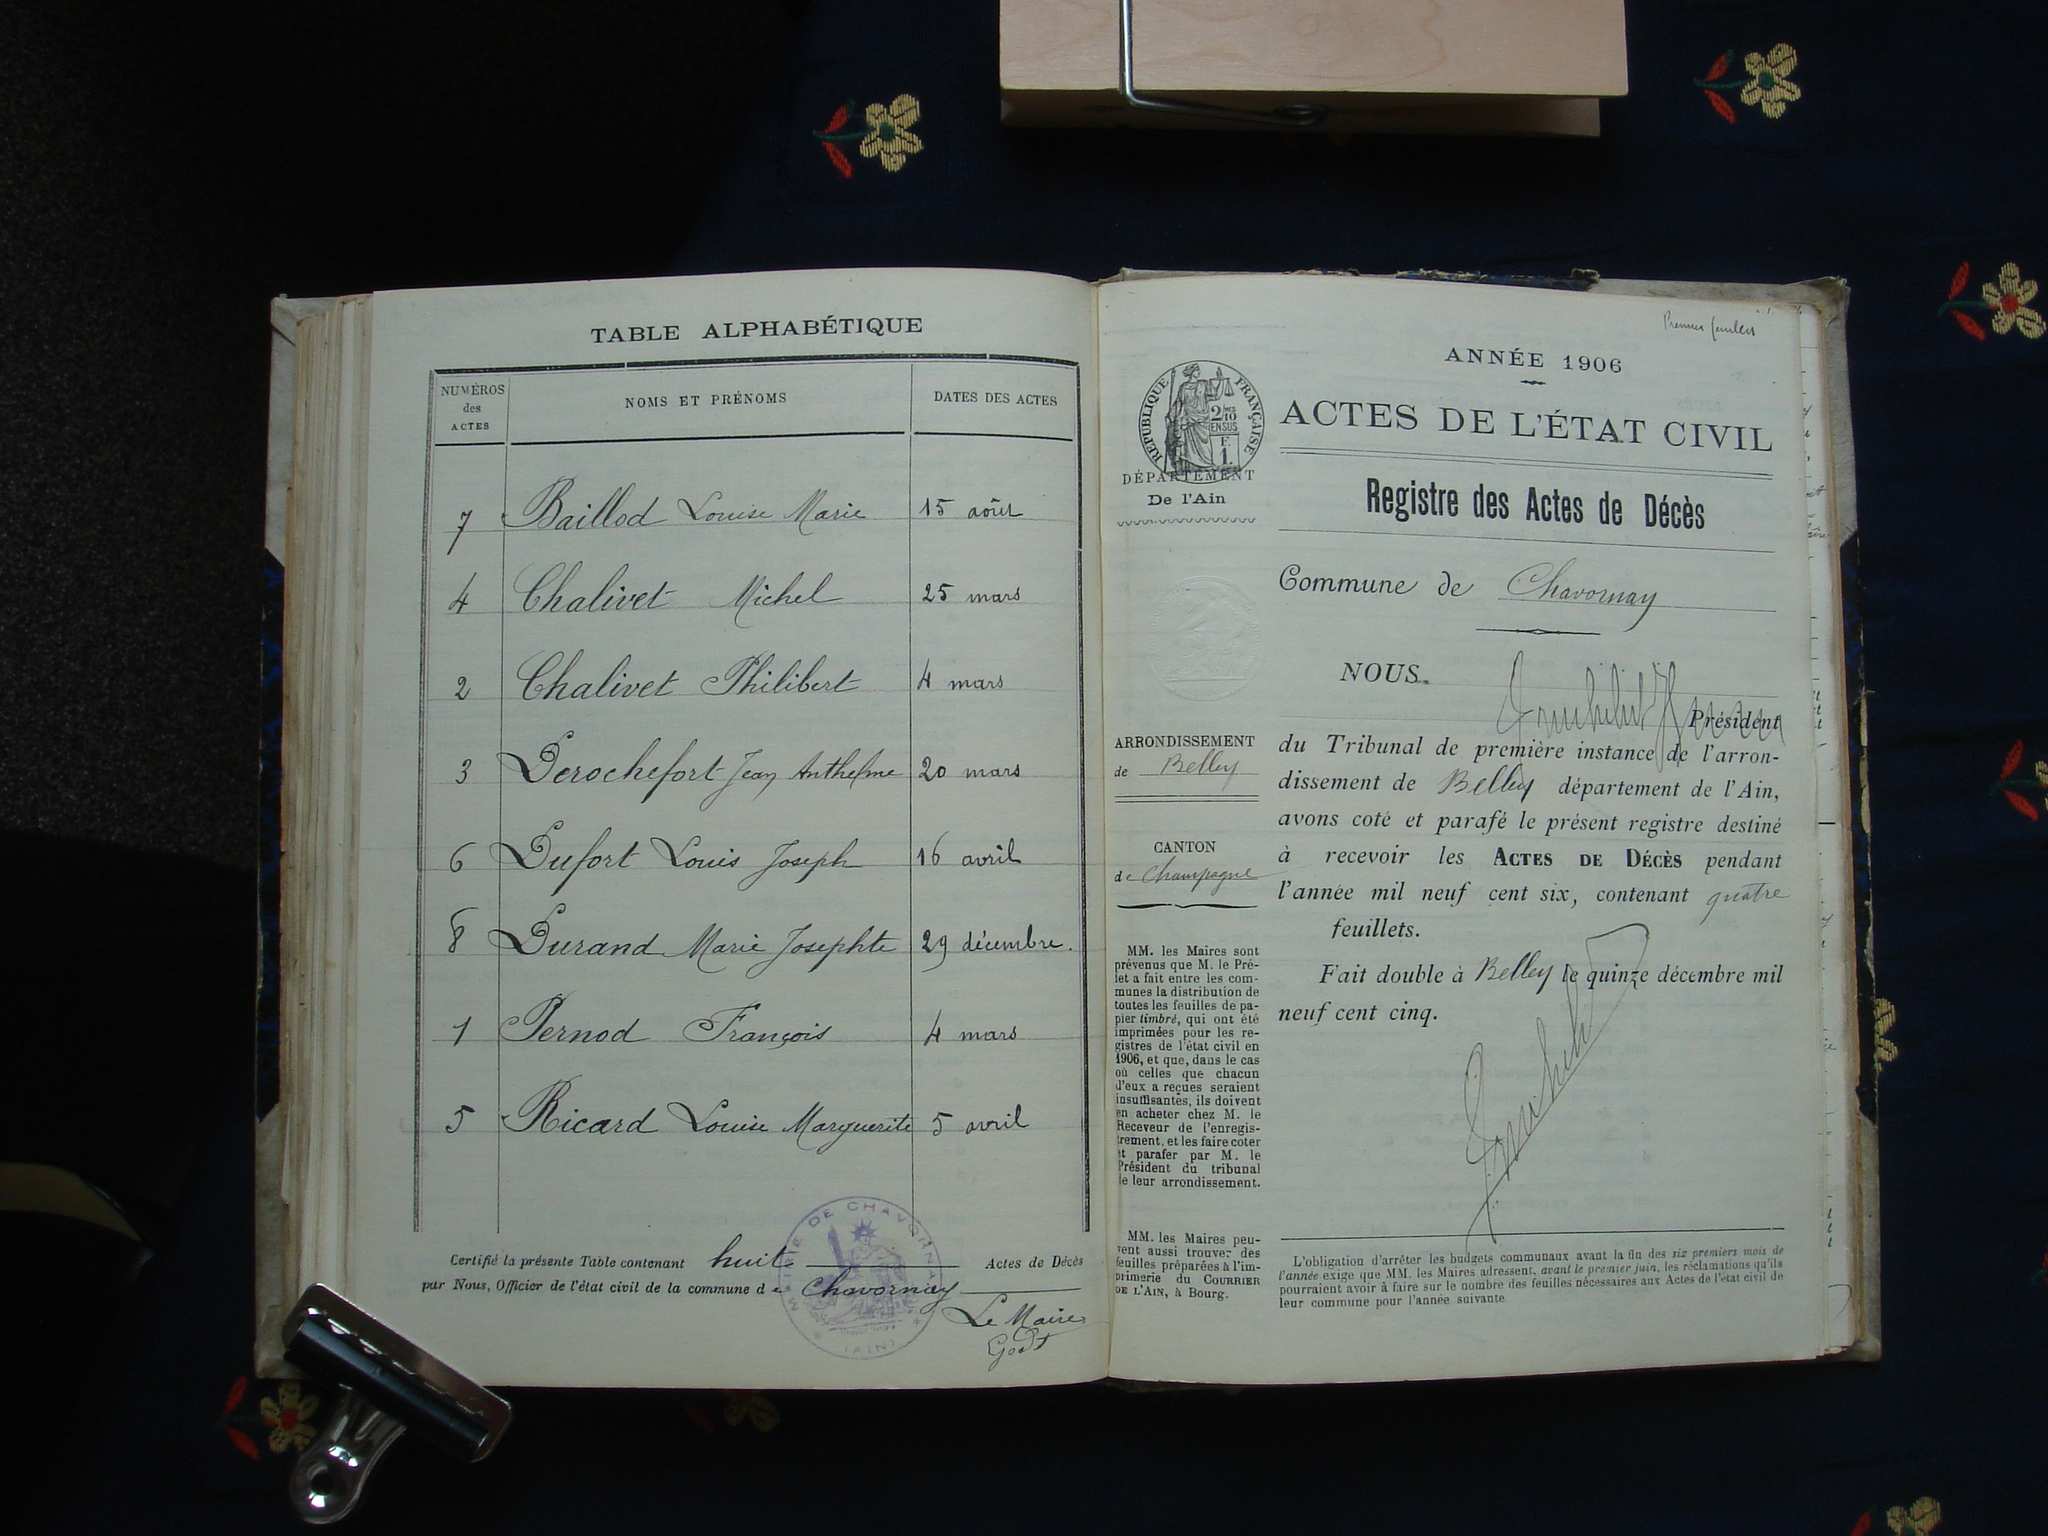 TABLE ALPHABÉTIQUE
NUMÉROS des ACTES NOMS ET PRÉNOMS DATES DES ACTES
7 Baillod Louise Marie 15 août
4 Chalivet Michel 25 mars
2 Chalivet Philibert 4 mars
3 Derochefort Jean Anthelme 20 mars
6 Dufort Louis Joseph 16 avril
8 Durand Marie Josephte 29 décembre.
1 Pernod François 4 mars
5 Ricard Louise Marguerite 5 avril
Certifié la présente Table contenant huit Actes de Décès
par Nous, Officier de l'état civil de la commune de Chavornay
Le Maire
MAIRIE DE CHAVORNAY
(AIN)
Premier feuillet
RÉPUBLIQUE FRANÇAISE
2/10 EN SUS
F.
1.
DÉPARTEMENT
De l'Ain
ARRONDISSEMENT
de Belley
CANTON
de Champagne
MM. les Maires sont
prévenus que M. le Pré-
fet a fait entre les com-
munes la distribution de
toutes les feuilles de pa-
pier timbré, qui ont été
imprimées pour les re-
gistres de l'état civil en
1906, et que, dans le cas
où celles que chacun
d'eux a reçues seraient
insuffisantes, ils doivent
en acheter chez M. le
Receveur de l'enregis-
trement, et les faire coter
et parafer par M. le
Président du tribunal
de leur arrondissement.
MM. les Maires peu-
vent aussi trouver des
feuilles préparées à l'im-
primerie du COURRIER
DE L'AIN, à Bourg.
ANNÉE 1906
ACTES DE L'ÉTAT CIVIL
Registre des Actes de Décès
Commune de Chavornay
NOUS.
Président
du Tribunal de première instance de l'arron-
dissement de Belley département de l'Ain,
avons coté et parafé le présent registre destiné
à recevoir les ACTES DE DÉCÈS pendant
l'année mil neuf cent six, contenant quatre
feuillets.
Fait double à Belley le quinze décembre mil
neuf cent cinq.
L'obligation d'arrêter les budgets communaux avant la fin des six premiers mois de
l'année exige que MM. les Maires adressent, avant le premier juin, les réclamations qu'ils
pourraient avoir à faire sur le nombre des feuilles nécessaires aux Actes de l'état civil de
leur commune pour l'année suivante